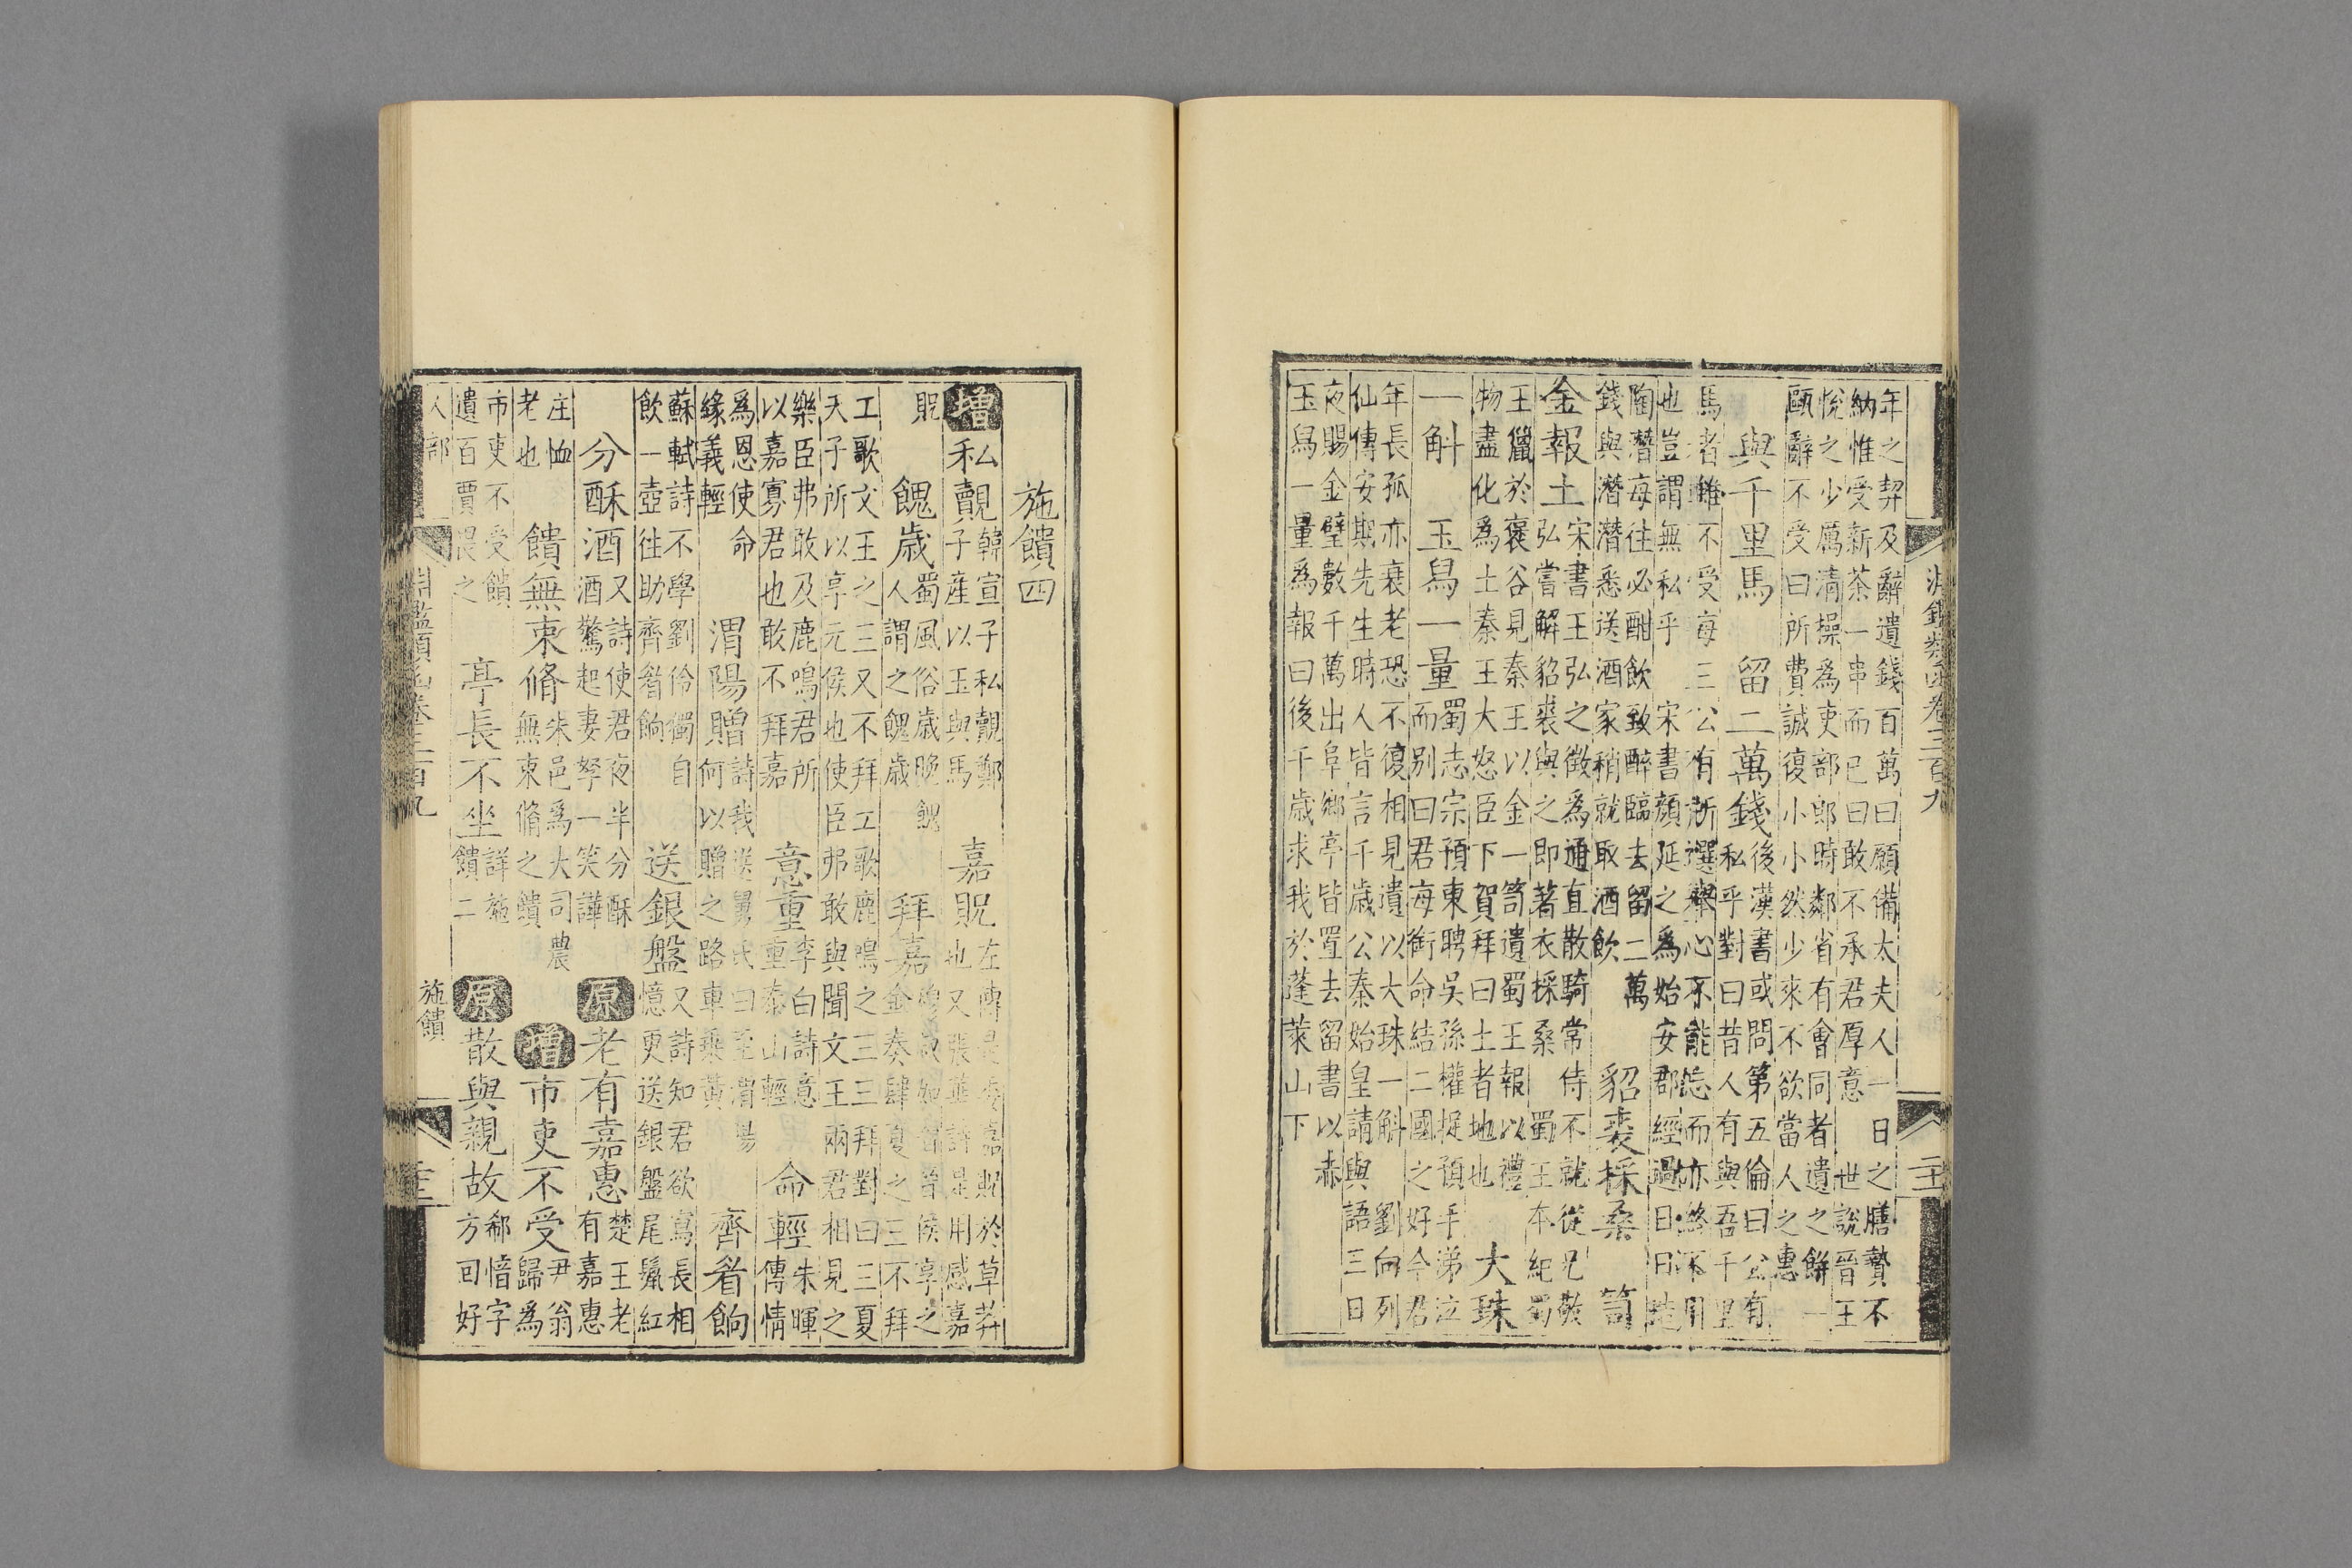 淵鑑類函卷三百九
年之契及辭遺錢百萬曰願備太夫人一日之膳贄不
納惟受新茶一串而已曰敢不承君厚意 世說晉王
悅之少厲清操為吏部郎時鄰省有會同者遺之餅一
甌辭不受曰所費誠復小小然少來不欲當人之惠
與千里馬 留二萬錢 後漢書或問第五倫曰公有
私乎對曰昔人有與吾千里
馬者雖不受每三公有所選舉心不能忘而亦終不用
也豈謂無私乎 宋書顏延之爲始安郡經過日日造
陶潛每往必酣飲致醉臨去留二萬
錢與潛潛悉送酒家稍就取酒飲 貂裘採桑 笥
金報土 宋書王弘之徵為通直散騎常侍不就從兄敬
弘嘗解貂裘與之即著衣採桑 蜀王本紀蜀
王獵於褒谷見秦王以金一笥遺蜀王報以禮
物盡化爲土秦王大怒臣下賀拜曰土者地也 大珠
一斛 玉舄一量 蜀志宗預東聘吳孫權捉預手涕泣
而别曰君每銜命結二國之好今君
年長孤亦衰老恐不復相見遺以大珠一斛 劉向列
仙傳安期先生時人皆言千歲公秦始皇請與語三日
夜賜金璧數千萬出阜鄉亭皆置去留書以赤
玉舄一量爲報曰後千歲求我於蓬萊山下
施饋四
增 私覿 韓宣子私覿鄭
子產以玉與馬 嘉貺 左傳是委嘉貺於草莽
也又張華詩是用感嘉
貺 餽歲 蜀風俗歲晚餽
人謂之餽歲 拜嘉 穆叔如晉晉侯享之
金奏肆夏之三不拜
工歌文王之三又不拜工歌鹿鳴之三三拜對曰三夏
天子所以享元侯也使臣弗敢與聞文王兩君相見之
樂臣弗敢及鹿鳴君所
以嘉寡君也敢不拜嘉 意重 李白詩意
重泰山輕 命輕 朱暉
傳情
爲恩使命
緣義輕 渭陽贈 詩我送舅氏曰至渭陽
何以贈之路車乘黃 齊眷餉
蘇軾詩不學劉伶獨自
飲一壺往助齊眷餉 送銀盤 又詩知君欲寫長相
憶更送銀盤尾鬣紅
分酥酒 又詩使君夜半分酥
酒驚起妻孥一笑譁 原 老有嘉惠 楚王老
有嘉惠
庄恤
老也 饋無束脩 朱邑爲大司農
無束脩之饋 增 市吏不受 尹翁
歸爲
市吏不受饋
遺百賈畏之 亭長不坐 詳施
饋二 原 散與親故 郗愔字
方回好
人部 淵鑑類函卷三百九 施饋